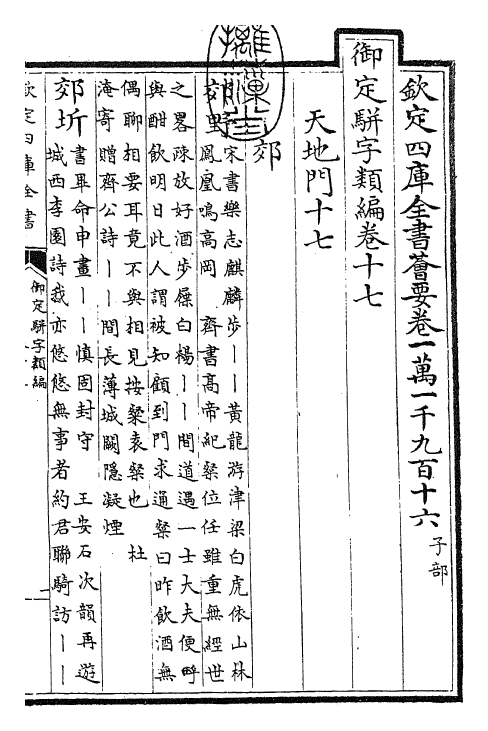 欽定四庫全書薈要卷一萬一千九百十六子部
御定駢字類編卷十七
天地門十七
郊
郊野宋書樂志麒麟步丨丨黃龍游津梁白虎依山林
鳳凰鳴高岡　齊書高帝紀粲位任雖重無經世
之畧疎放好酒步屧白楊丨丨間道遇一士大夫便呼
與酣飲明日此人謂被知顧到門求通粲曰昨飲酒無
偶聊相要耳竟不與相見按粲袁粲也　杜
淹寄贈齊公詩丨丨間長薄城闕隱凝煙
郊圻書畢命申畫丨丨慎固封守　王安石次韻再遊
城西李園詩我亦悠悠無事者約君聯騎訪丨丨
欽定四庫全書
御定駢字類編